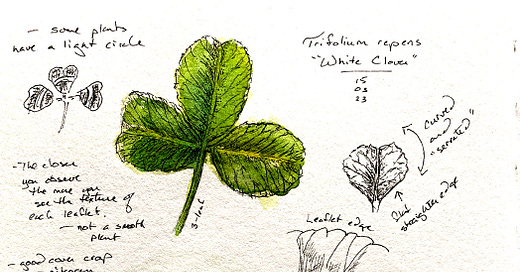 - some plants
have a light circle
Trifolium repens
"White Clover"
15
03
23
Curved
and
serrated"
- The closer
you observe
the more you
see the feature of
each leaflet.
- not a smooth
plant
3-leaf
straighter edge
Leaflet edge
- good cover crop